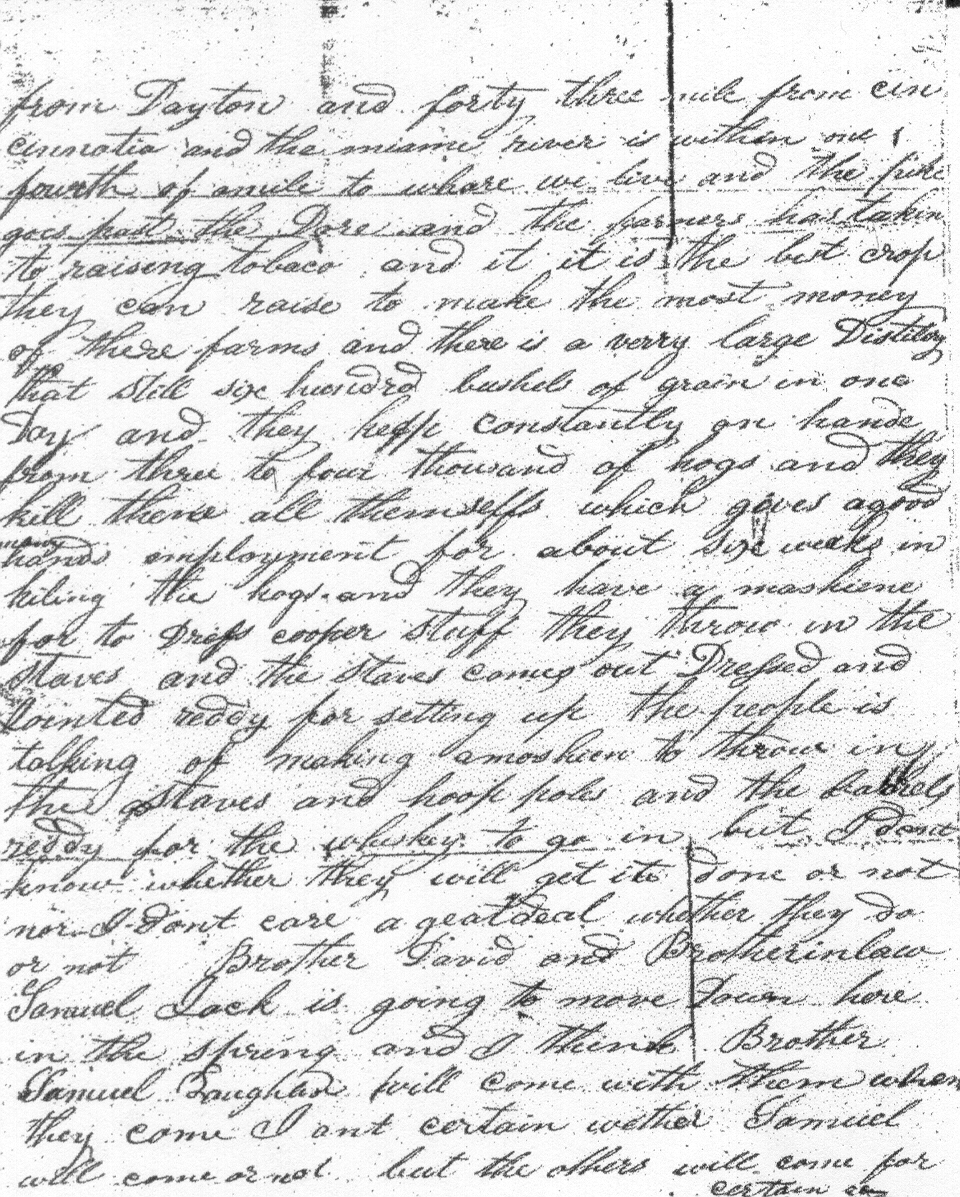 from Dayton and forty three mile from cin
cinnatia and the miame river is within one
fourth of amile to whare we live and the pike
goes past the Dore and the farmers has takin
to raising tobaco and it it is the best crop
they can raise to make the most money
of there farms and there is a verry large Distilory
that still six hundrd bushels of grain in one
Day and they keep constantly on hande
from three to four thousand of hogs and they
kill theme all themselfs which gives agood
many
hands employment for about six weeks in
kiling the hogs and they have a mashiene
for to Dress cooper stuff they throw in the
staves and the staves comes out Dressed and
Jointed reddy for setting up the people is
talking of making amoshien to throw in
the staves and hoop poles and the barrels
reddy for the whiskey to go in but I dont
know whether they will get it done or not
nor I dont care a geatdeal whether they do
or not Brother David and Brotherinlaw
Samuel Jack is going to move Down here
in the spring and I think Brother
Samuel will come with them when
they come I ant certain wether Samuel
will come or not but the others will come for
certain